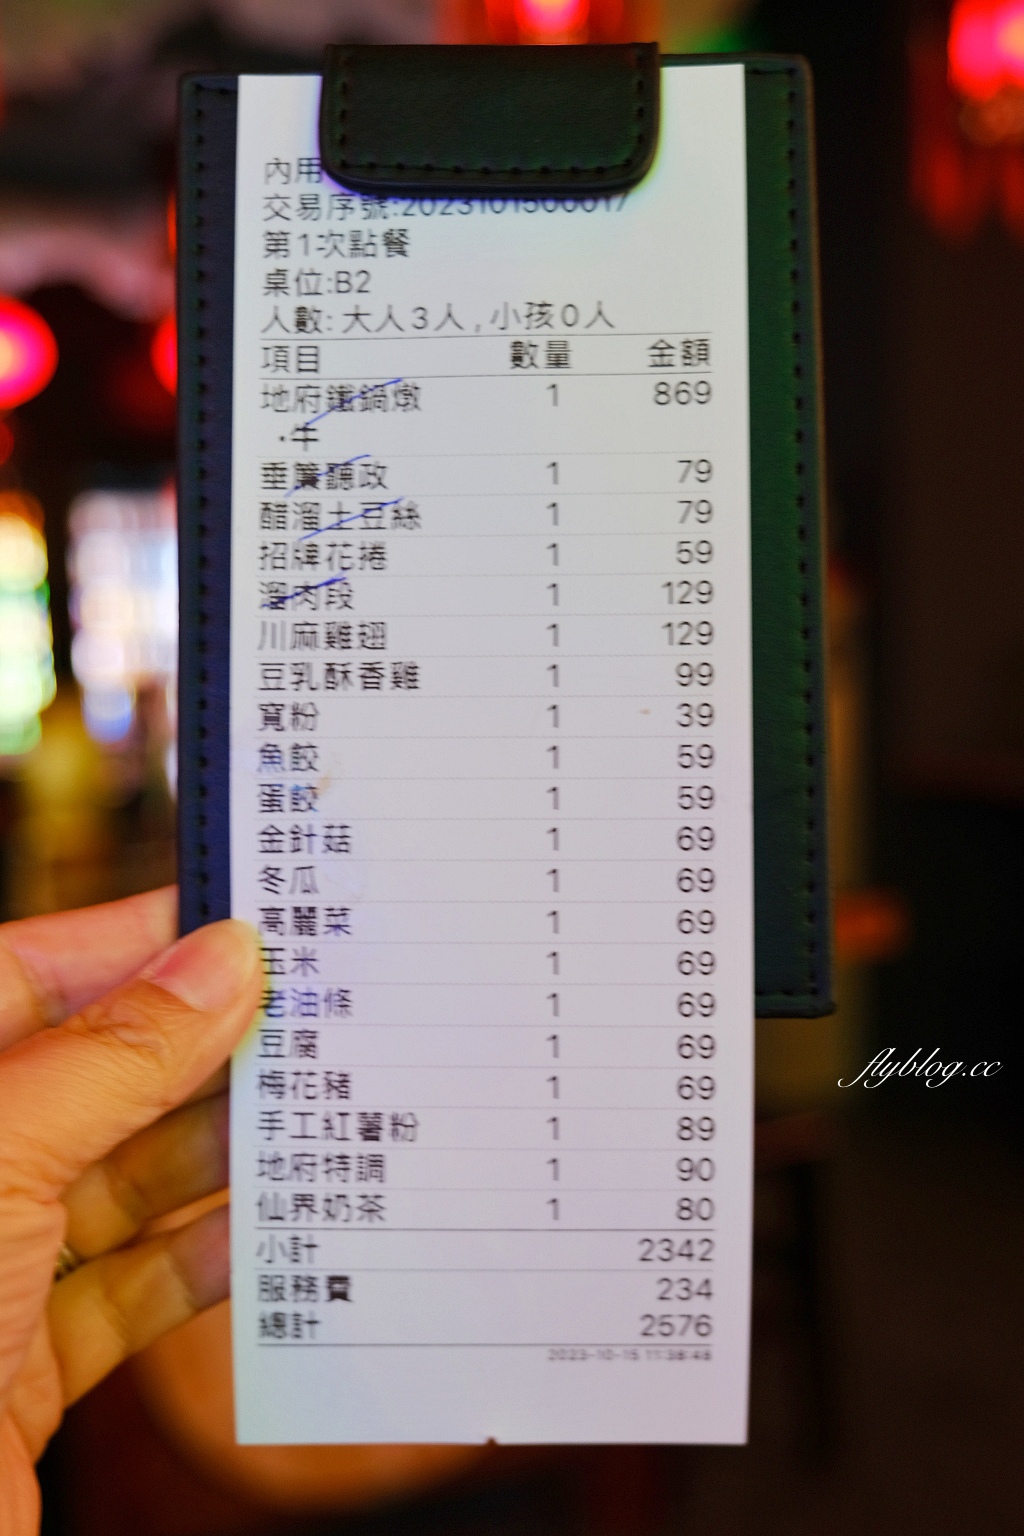 內用
交易序號:2023101500017
第1次點餐
桌位:B2
人數: 大人3人 , 小孩0人
項目 數量 金額
地府鐵鍋燉 1 869
・牛
垂簾聽政 1 79
醋溜土豆絲 1 79
招牌花捲 1 59
溜肉段 1 129
川麻雞翅 1 129
豆乳酥香雞 1 99
寬粉 1 39
魚餃 1 59
蛋餃 1 59
金針菇 1 69
冬瓜 1 69
高麗菜 1 69
玉米 1 69
老油條 1 69
豆腐 1 69
梅花豬 1 69
手工紅薯粉 1 89
地府特調 1 90
仙界奶茶 1 80
小計 2342
服務費 234
總計 2576
2023-10-15 11:38:48
flyblog.cc